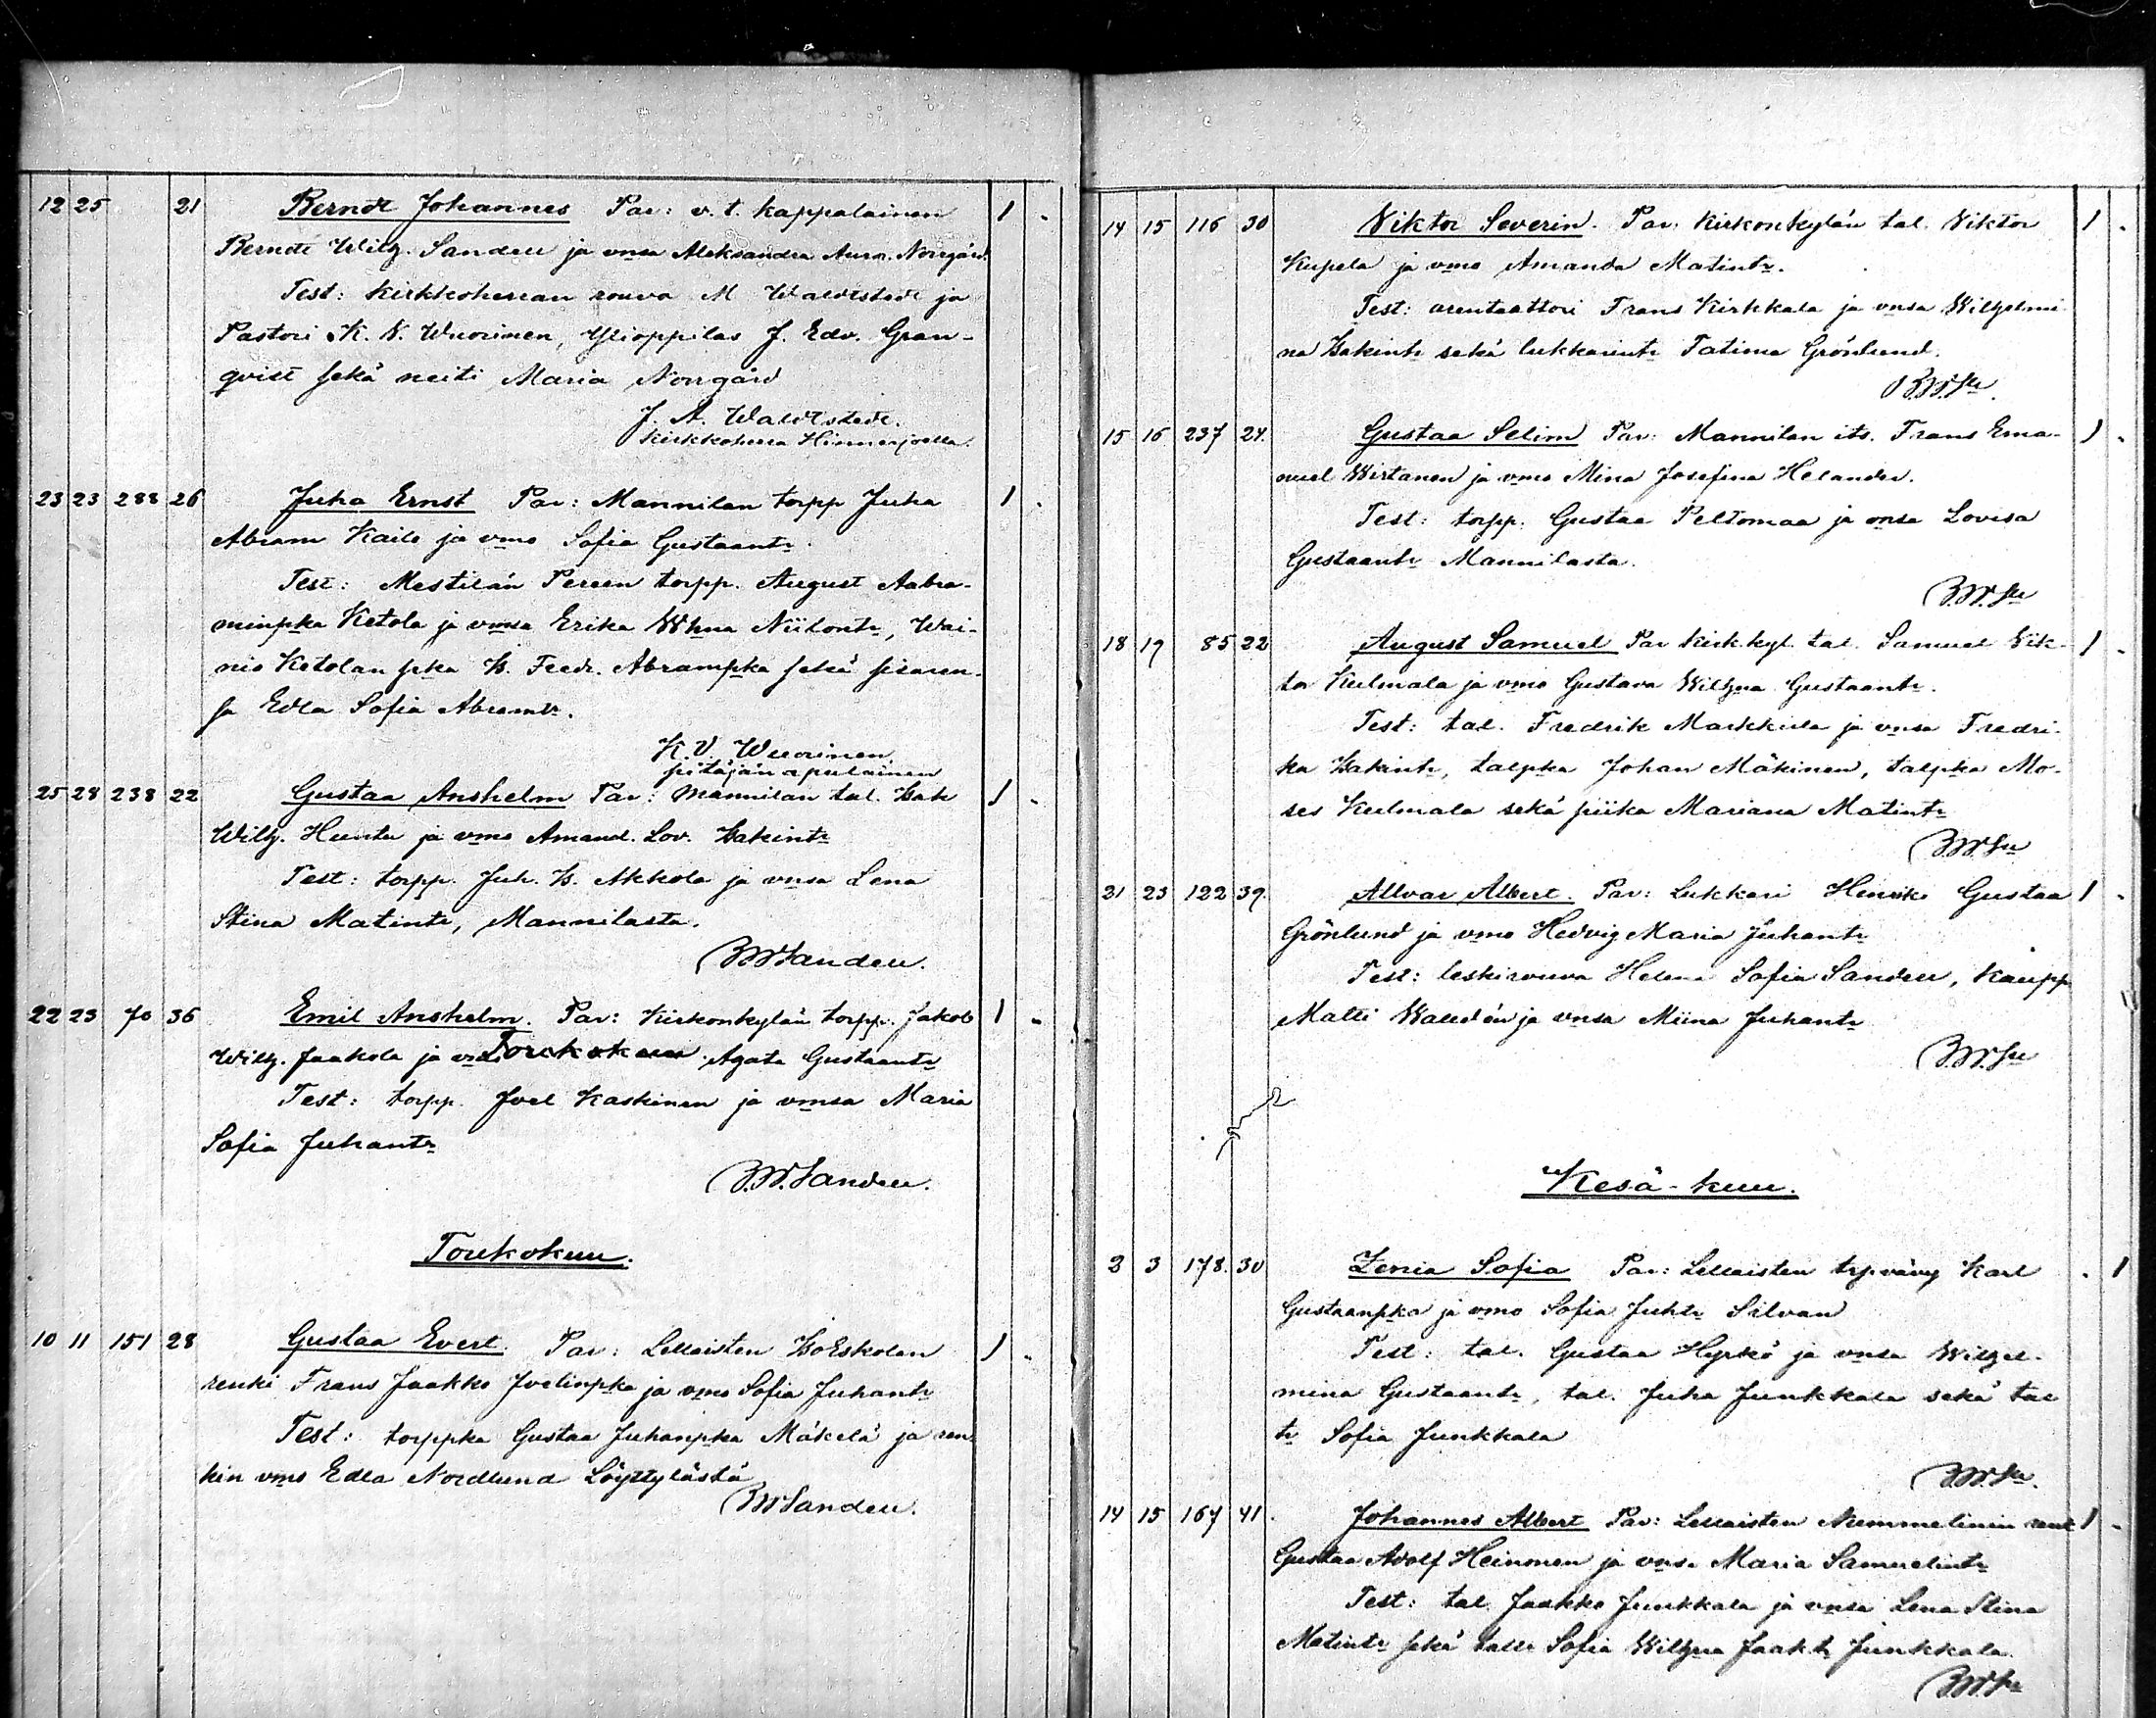 12 25 21 Berndt Johannes Par: v. t. kappalainen 1 -
Berndt Wilh. Sandell ja vmsa Aleksandra Auror. Norrgård.
Test: Kirkkoherran rouva M Waldstedt ja
Pastori K. V. Wuorinen, Ylioppilas J. Edv. Gran-
qvist sekä neiti Maria Norrgård
J. A. Waldstedt.
Kirkkoherra Hinnerjoella.
23 23 288 26 Juha Ernst Par: Mannilan torpp Juha 1 -
Abram Kailo ja vmo Sofia Gustaantr
Test: Mestilän Pereen torpp. August Aabra-
minpka Ketola ja vmsa Erika Whna Niilontr, Wai-
nio Ketolan pka Is. Fredr. Abrampka sekä sisaren-
sa Edla Sofia Abramtr.
K. V. Wuorinen
pitäjän apulainen
25 28 238 22 Gustaa Anshelm Par: Mannilan tal. Isak 1 -
Wilh. Huntu ja vmo Amand. Lov. Isakintr
Test: torpp. Juh. Is. Akkola ja vmsa Lena
Stina Matintr, Mannilasta.
BWSandell.
22 23 70 36 Emil Anshelm. Par: Kirkonkylän torpp. Jakob 1 -
Wilh. Jaakola ja Toukokuu Agata Gustaantr
Test: torpp. Joel Kaskinen ja vmsa Maria
Sofia Juhantr
B.W.Sandell.
Toukokuu.
10 11 151 28 Gustaa Evert. Par: Lellaisten IsoEskolan 1 -
renki Frans Jaakko Joelinpka ja vmo Sofia Juhantr
Test: torppka Gustaa Juhanpka Mäkelä ja ren-
kin vmo Edla Nordlund Löyttylästä
BWSandell.
14 15 116 30 Viktor Severin. Par: Kirkonkylän tal. Viktor 1 -
Kupela ja vmo Amanda Matintr.
Test: arentaattori Frans Kirkkala ja vmsa Wilhelmi-
na Isakintr sekä lukkarintr Fatima Grönlund.
B.W.Sll.
15 16 237 24. Gustaa Selim Par: Mannilan its. Frans Ema- 1 -
nuel Wirtanen ja vmo Mina Josefina Helander.
Test: torpp. Gustaa Peltomaa ja vmsa Lovisa
Gustaantr Mannilasta.
B.W.Sll
18 19 85 22 August Samuel Par Kirk.kyl. tal. Samuel Vik- 1 -
tor Kulmala ja vmo Gustava Wilhna Gustaantr.
Test: tal. Fredrik Markkula ja vmsa Fredri-
ka Isakintr, talpka Johan Mäkinen, talpka Mo-
ses Kulmala sekä piika Mariana Matintr
B.W.Sll
21 23 122 39. Allvar Albert. Par: Lukkari Henrik Gustaa 1 -
Grönlund ja vmo Hedvig Maria Juhantr
Test: leskirouva Helena Sofia Sandell, Kaupp
Matti Walldén ja vmsa Miina Juhantr
B.W.Sll
Kesä-kuu.
2 3 178. 30 Zenia Sofia Par: Lellaisten trpvävy Karl - 1
Gustaanpka ja vmo Sofia Juhtr Silvan
Test: tal. Gustaa Hyrkö ja vmsa Wilhel-
mina Gustaantr, tal. Juha Junkkala sekä tal
tr Sofia Junkkala
B.W.Sll.
14 15 167 41. Johannes Albert Par: Lellaisten Nummelinin renk 1 -
Gustaa Adolf Heinonen ja vmsa Maria Samuelintr
Test: tal. Jaakko Junkkala ja vmsa Lena Stina
Matintr sekä taltr Sofia Wilhna Jaak.tr Junkkala.
B.W.Sll